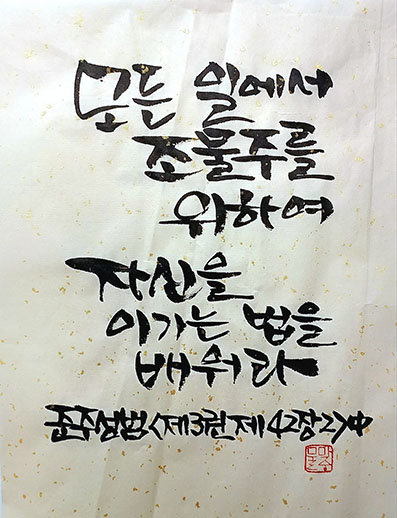 모든 일에서
조물주를
위하여
자신을
이기는 법을
배워라
준주성범<제3권 제42장2>中